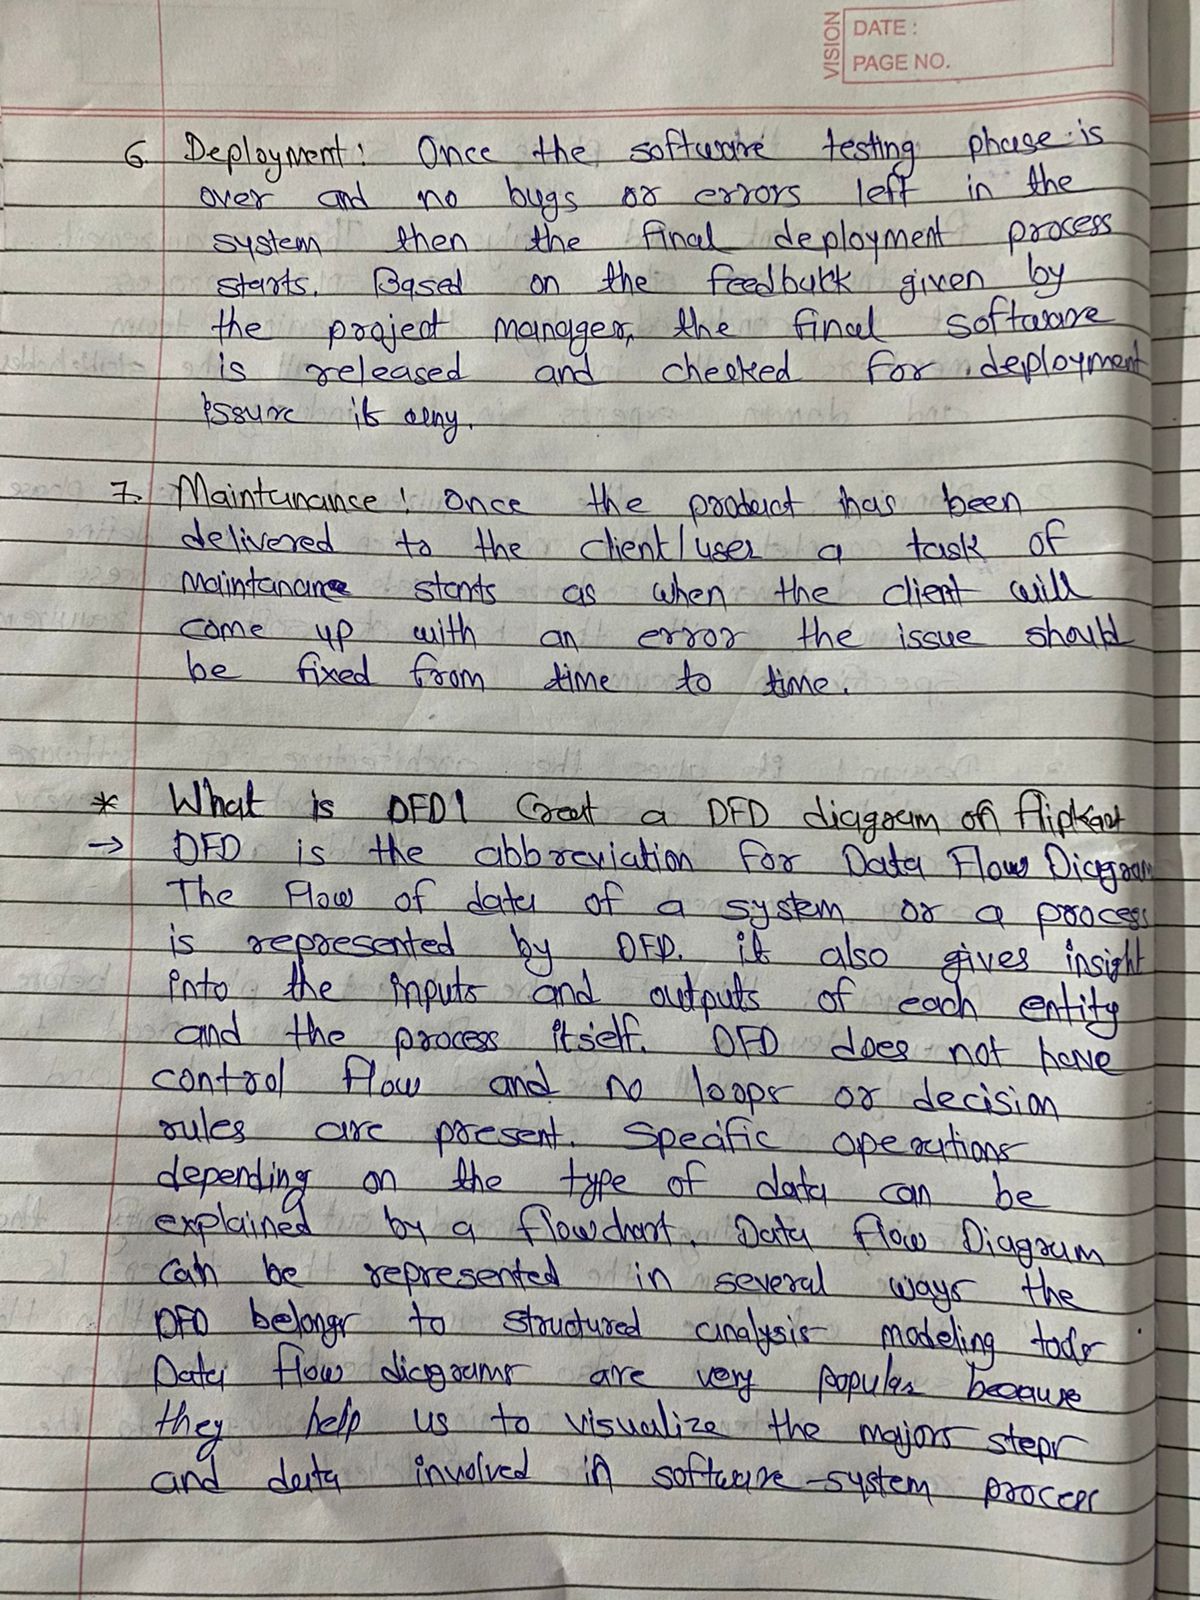 VISION
DATE :
PAGE NO.
6. Deployment: Once the software testing phase is
over and no bugs or errors left in the
system then the final deployment process
starts. Based on the feedbark given by
the project manager, the final software
is released and checked for deployment
issure if any.
7. Maintanance: Once the product has been
delivered to the client/user a task of
maintanance starts as when the client will
come up with an error the issue should
be fixed from time to time.
* What is DFD! Creat a DFD diagram on flipkart
→ DFD is the abbreviation for Data Flow Diagram
The Flow of data of a system or a process
is represented by DFD. it also gives insight
into the inputs and outputs of each entity
and the process itself. DFD does not have
control flow and no loops or decision
rules are present. Specific operations
depending on the type of data can be
explained by a flowchart. Data flow Diagram
can be represented in several ways the
DFD belongs to structured analysis modeling tools
Data flow diagrams are very popular because
they help us to visualize the majors steps
and data involved in software-system process